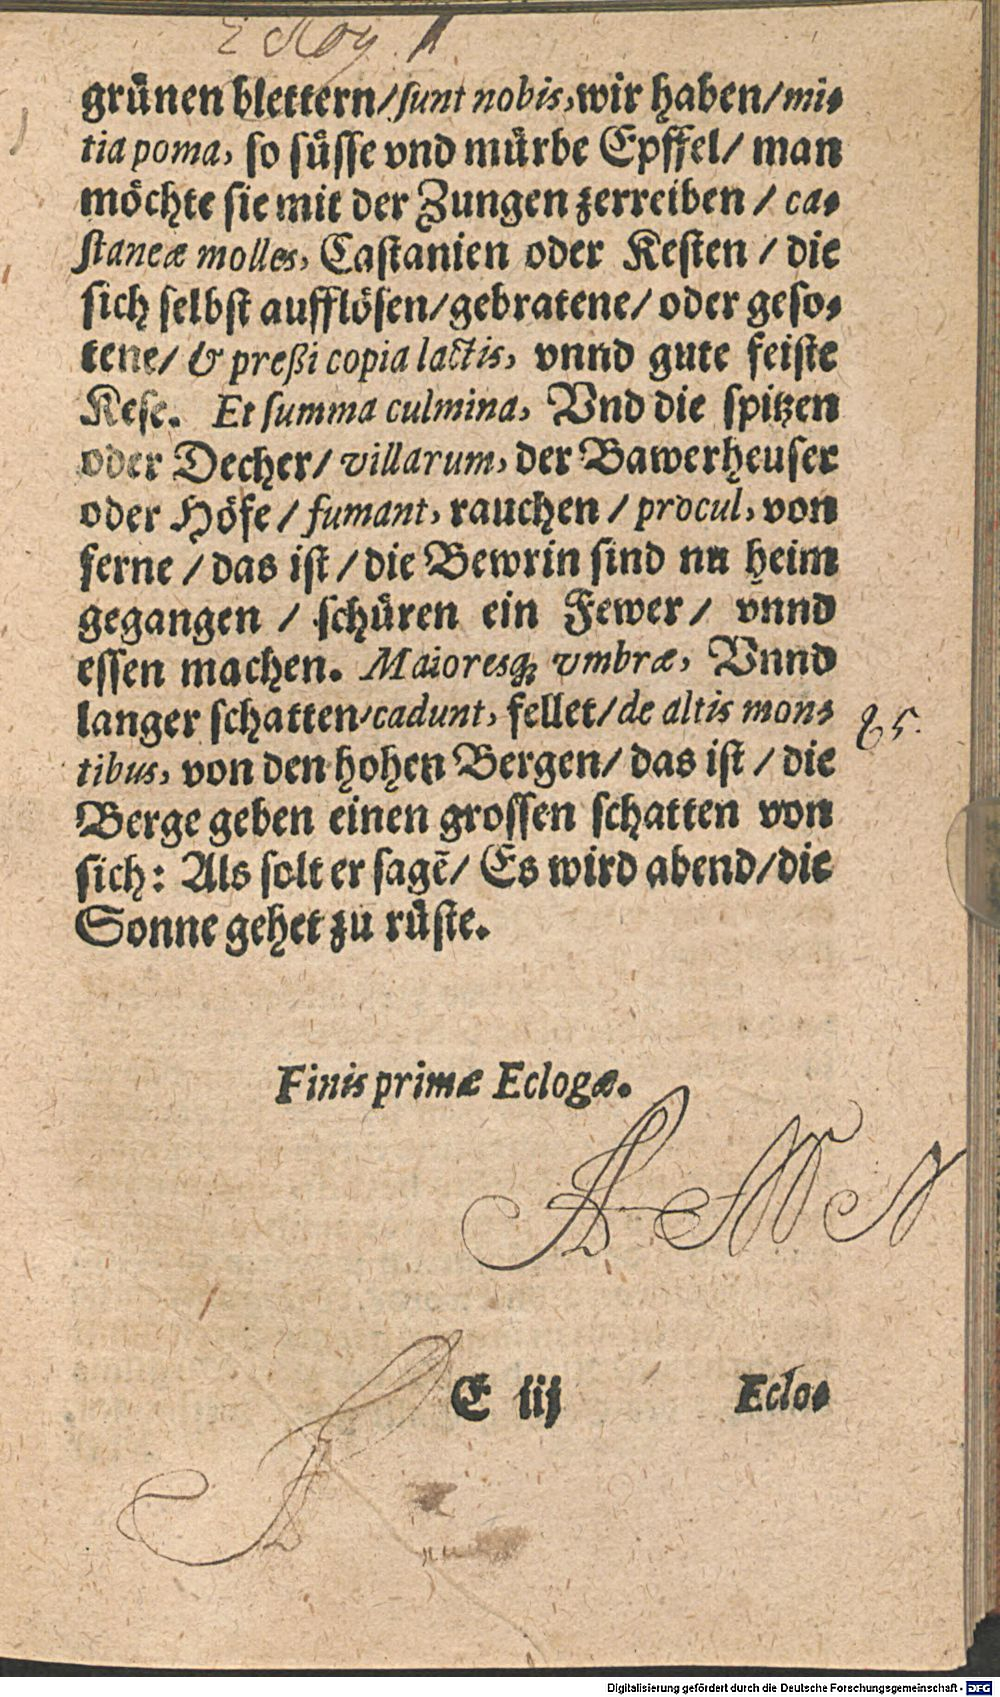 Eclog. 1
grünen blettern/ sunt nobis, wir haben/ mi-
tia poma, so süsse vnd mürbe Epffel/ man
möchte sie mit der Zungen zerreiben / ca-
staneæ molles, Castanien oder Kesten / die
sich selbst aufflösen/ gebratene/ oder geso-
tene/ & preßi copia lactis, vnnd gute feiste
Kese. Et summa culmina, Vnd die spitzen
oder Decher/ villarum, der Bawerheuser
oder Höfe / fumant, rauchen / procul, von
ferne / das ist / die Bewrin sind nu heim
gegangen / schüren ein Fewer/ vnnd
essen machen. Maioresq; vmbræ, Vnnd
langer schatten/ cadunt, fellet/ de altis mon-
tibus, von den hohen Bergen/ das ist / die
Berge geben einen grossen schatten von
sich: Als solt er sagē/ Es wird abend/ die
Sonne gehet zu rüste.
85.
Finis primæ Eclogæ.
E iij
Eclo-
Digitalisierung gefördert durch die Deutsche Forschungsgemeinschaft - DFG